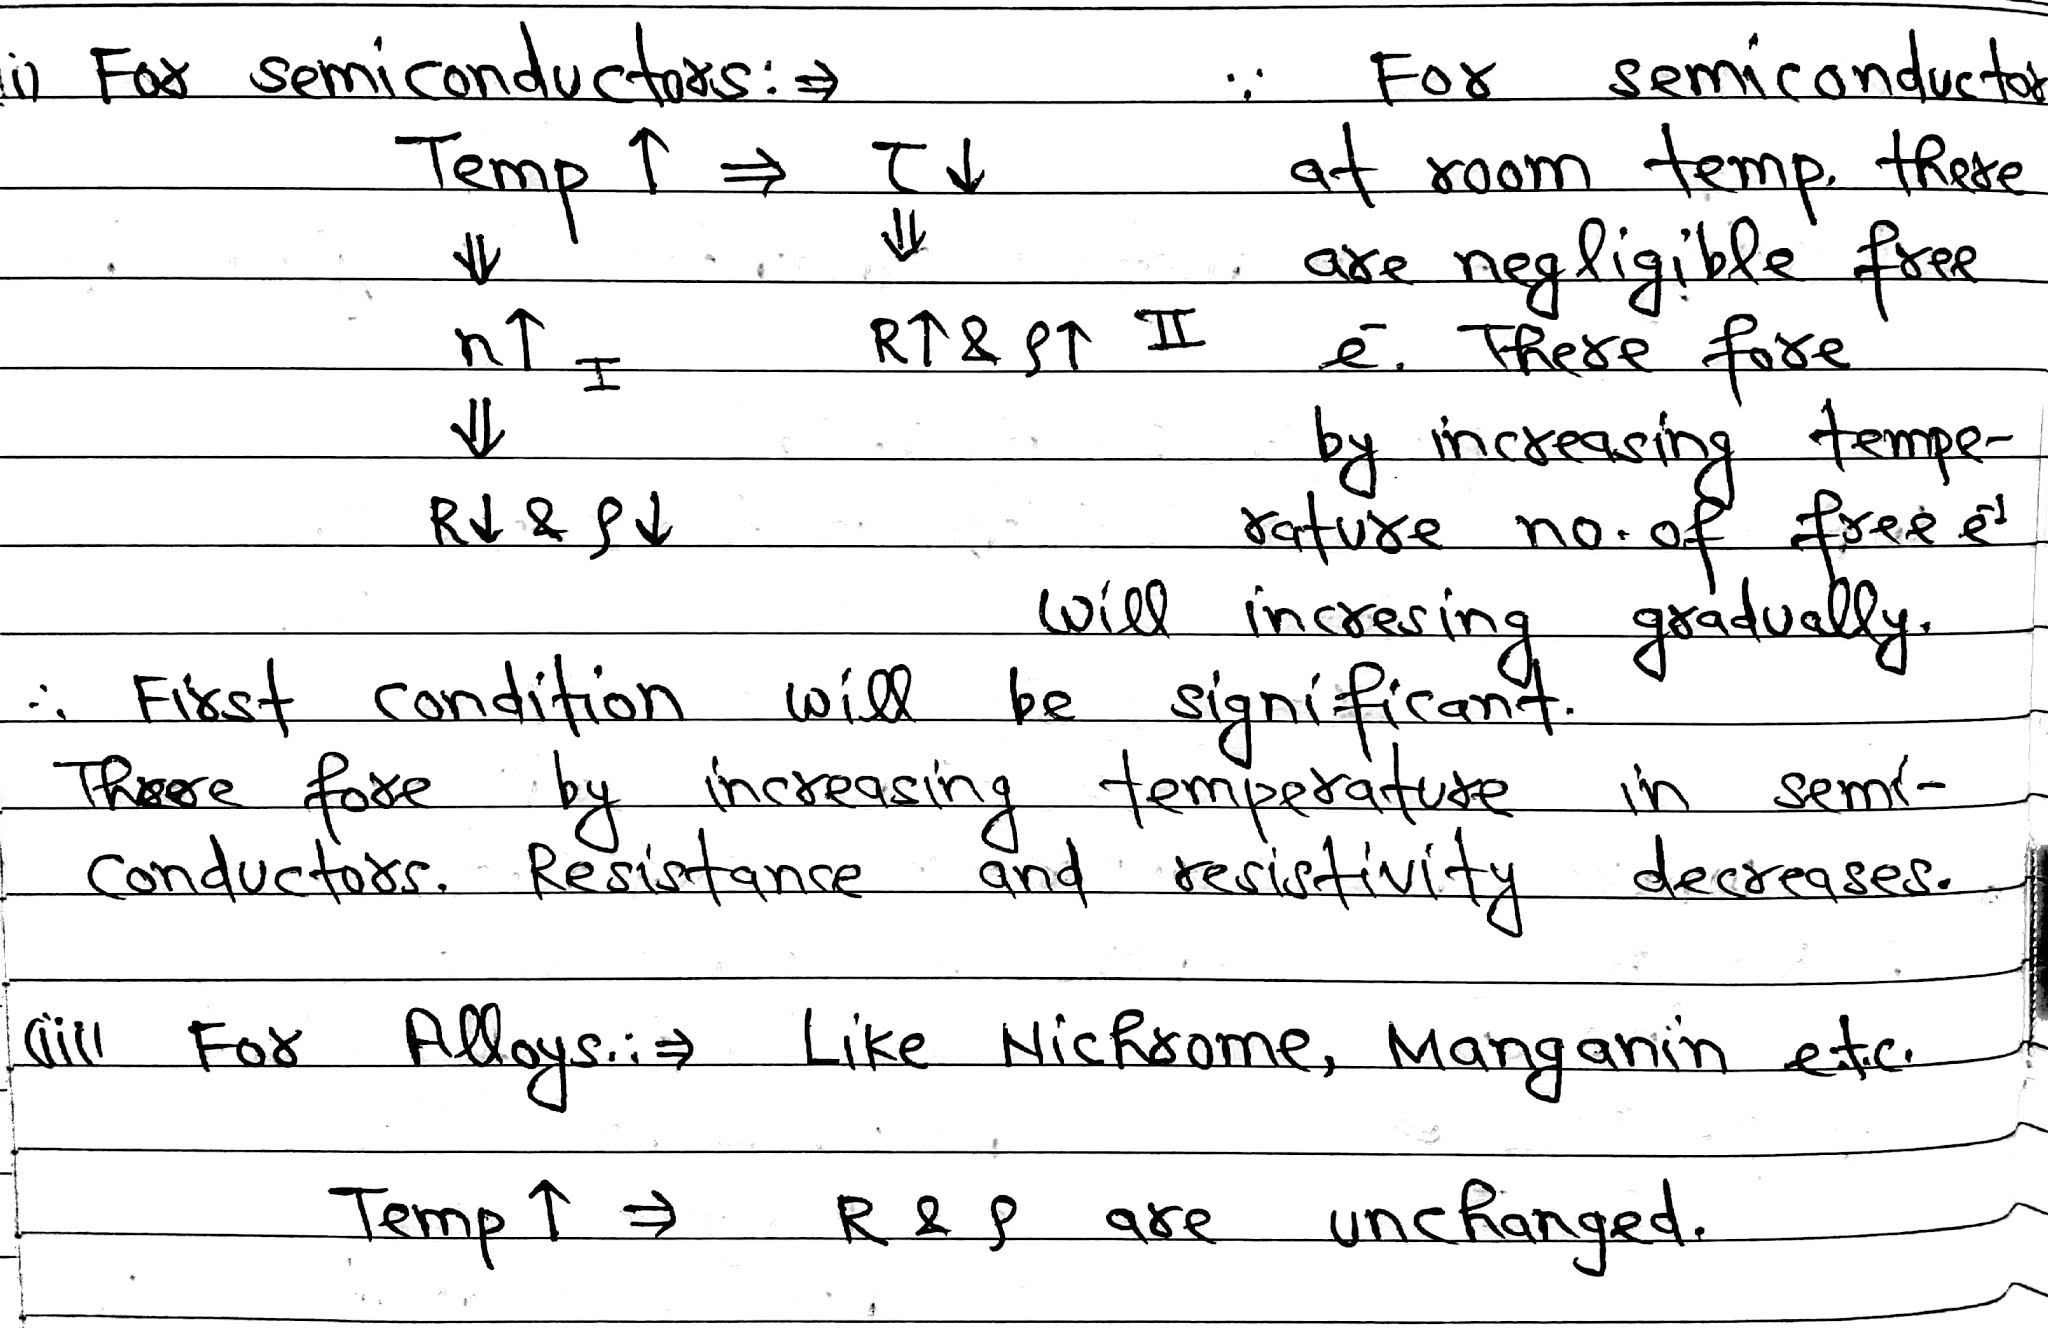 ii) For semiconductors:⇒
Temp ↑ ⇒ τ↓
⇓ ⇓
n↑ I R↑ & ρ↑ II
⇓
R↓ & ρ↓
∵ For semiconductor
at room temp. there
are negligible free
ē. There fore
by increasing tempe-
rature no. of free ēs
will incresing gradually.
∴ First condition will be significant.
There fore by increasing temperature in semi-
conductors. Resistance and resistivity decreases.
(iii) For Alloys:⇒ Like Nichrome, Manganin etc.
Temp ↑ ⇒ R & ρ are unchanged.